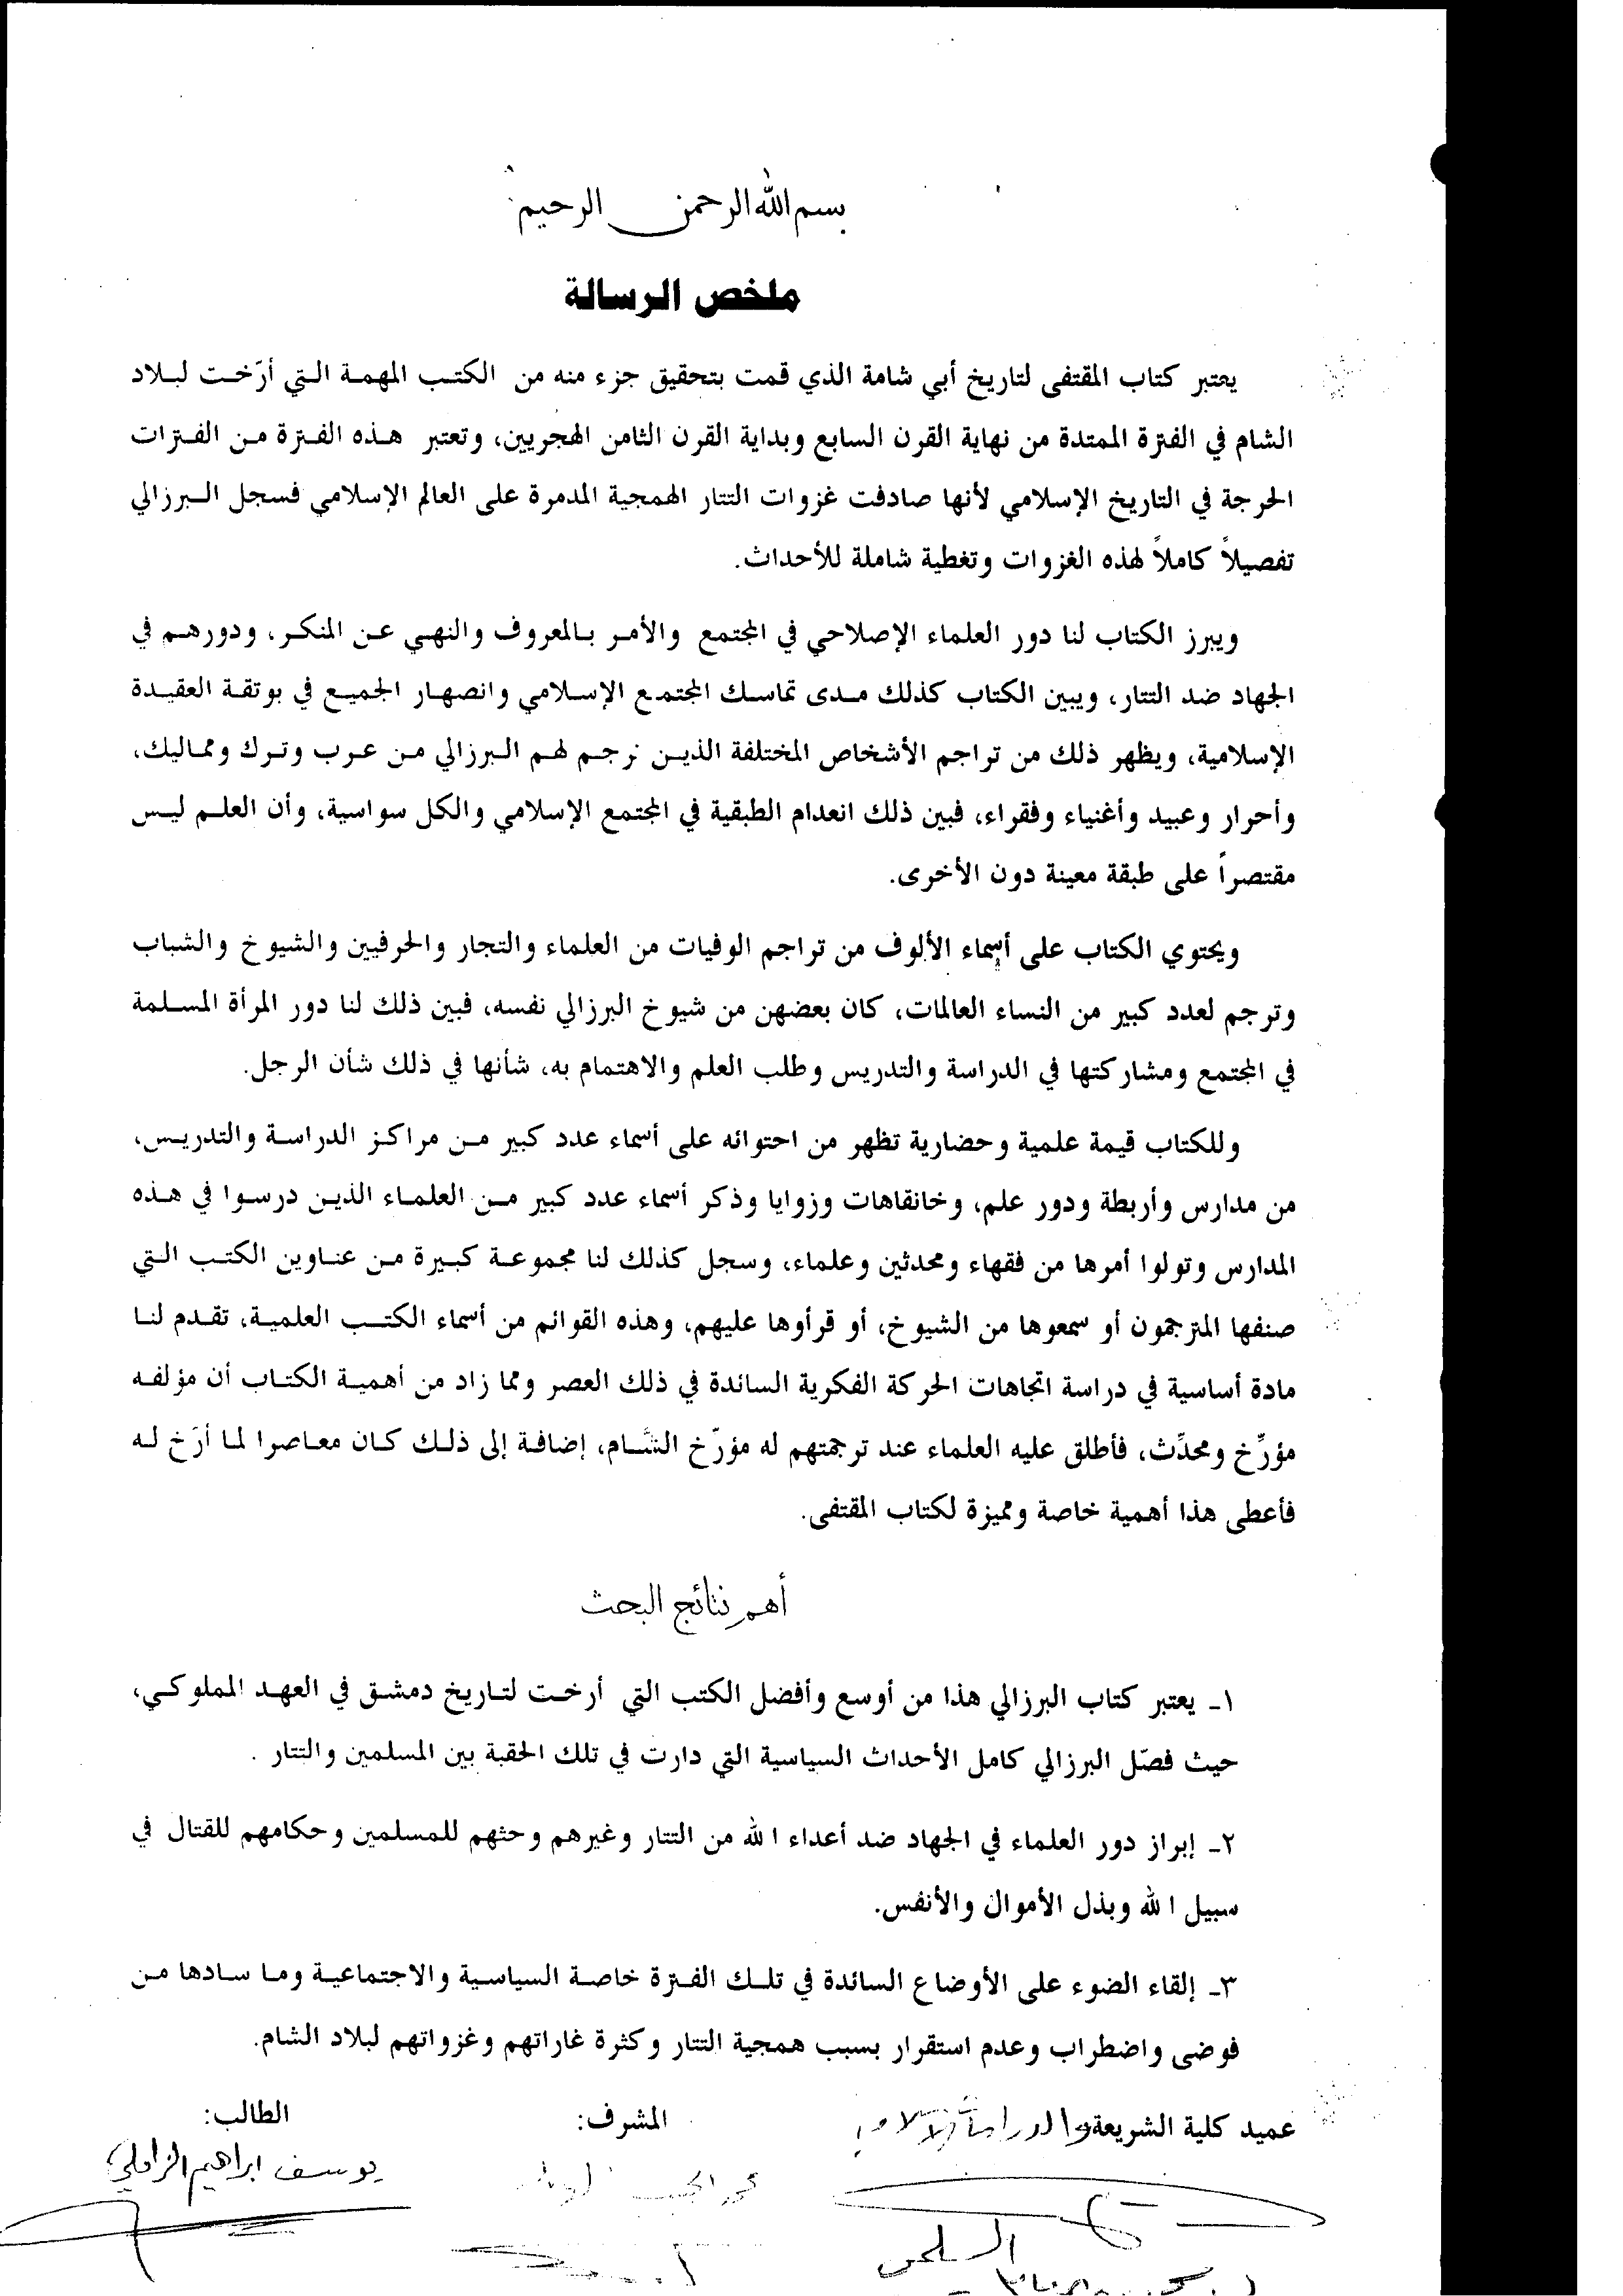 بسم الله الرحمن الرحيم
ملخص الرسالة
يعتبر كتاب المقتفى لتاريخ أبي شامة الذي قمت بتحقيق جزء منه من الكتب المهمة التي أرّخت لبلاد
الشام في الفترة الممتدة من نهاية القرن السابع وبداية القرن الثامن الهجريين، وتعتبر هذه الفترة من الفترات
الحرجة في التاريخ الإسلامي لأنها صادفت غزوات التتار الهمجية المدمرة على العالم الإسلامي فسجل البرزالي
تفصيلاً كاملاً لهذه الغزوات وتغطية شاملة للأحداث.
ويبرز الكتاب لنا دور العلماء الإصلاحي في المجتمع والأمر بالمعروف والنهي عن المنكر، ودورهم في
الجهاد ضد التتار، ويبين الكتاب كذلك مدى تماسك المجتمع الإسلامي وانصهار الجميع في بوتقة العقيدة
الإسلامية، ويظهر ذلك من تراجم الأشخاص المختلفة الذين ترجم لهم البرزالي من عرب وترك ومماليك،
وأحرار وعبيد وأغنياء وفقراء، فبين ذلك انعدام الطبقية في المجتمع الإسلامي والكل سواسية، وأن العلم ليس
مقتصراً على طبقة معينة دون الأخرى.
ويحتوي الكتاب على أسماء الألوف من تراجم الوفيات من العلماء والتجار والحرفيين والشيوخ والشباب
وترجم لعدد كبير من النساء العالمات، كان بعضهن من شيوخ البرزالي نفسه، فبين ذلك لنا دور المرأة المسلمة
في المجتمع ومشاركتها في الدراسة والتدريس وطلب العلم والاهتمام به، شأنها في ذلك شأن الرجل.
وللكتاب قيمة علمية وحضارية تظهر من احتوائه على أسماء عدد كبير من مراكز الدراسة والتدريس،
من مدارس وأربطة ودور علم، وخانقاهات وزوايا وذكر أسماء عدد كبير من العلماء الذين درسوا في هذه
المدارس وتولوا أمرها من فقهاء ومحدثين وعلماء، وسجل كذلك لنا مجموعة كبيرة من عناوين الكتب التي
صنفها المترجمون أو سمعوها من الشيوخ، أو قرأوها عليهم، وهذه القوائم من أسماء الكتب العلمية، تقدم لنا
مادة أساسية في دراسة اتجاهات الحركة الفكرية السائدة في ذلك العصر ومما زاد من أهمية الكتاب أن مؤلفه
مؤرِّخ ومحدِّث، فأطلق عليه العلماء عند ترجمتهم له مؤرّخ الشَّام، إضافة إلى ذلك كان معاصرا لما أرّخ له
فأعطى هذا أهمية خاصة ومميزة لكتاب المقتفى.
أهم نتائج البحث
١ـ يعتبر كتاب البرزالي هذا من أوسع وأفضل الكتب التي أرخت لتاريخ دمشق في العهد المملوكي،
حيث فصّل البرزالي كامل الأحداث السياسية التي دارت في تلك الحقبة بين المسلمين والتتار .
٢ـ إبراز دور العلماء في الجهاد ضد أعداء الله من التتار وغيرهم وحثهم للمسلمين وحكامهم للقتال في
سبيل الله وبذل الأموال والأنفس.
٣ـ إلقاء الضوء على الأوضاع السائدة في تلك الفترة خاصة السياسية والاجتماعية وما سادها من
فوضى واضطراب وعدم استقرار بسبب همجية التتار وكثرة غاراتهم وغزواتهم لبلاد الشام.
عميد كلية الشريعة والدراسات الإسلامية المشرف: الطالب:
يوسف ابراهيم الزاملي